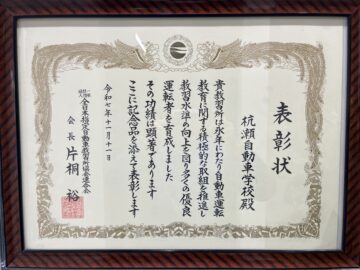 表彰状
杭瀬自動車学校殿
貴教習所は永年にわたり自動車運転
教育に関する積極的な取組を推進し
教習水準の向上を図り多くの優良
運転者を育成しました
その功績は顕著であります
ここに記念品を添えて表彰します
令和七年十一月十一日
全日本指定自動車教習所協会連合会
会長 片桐 裕